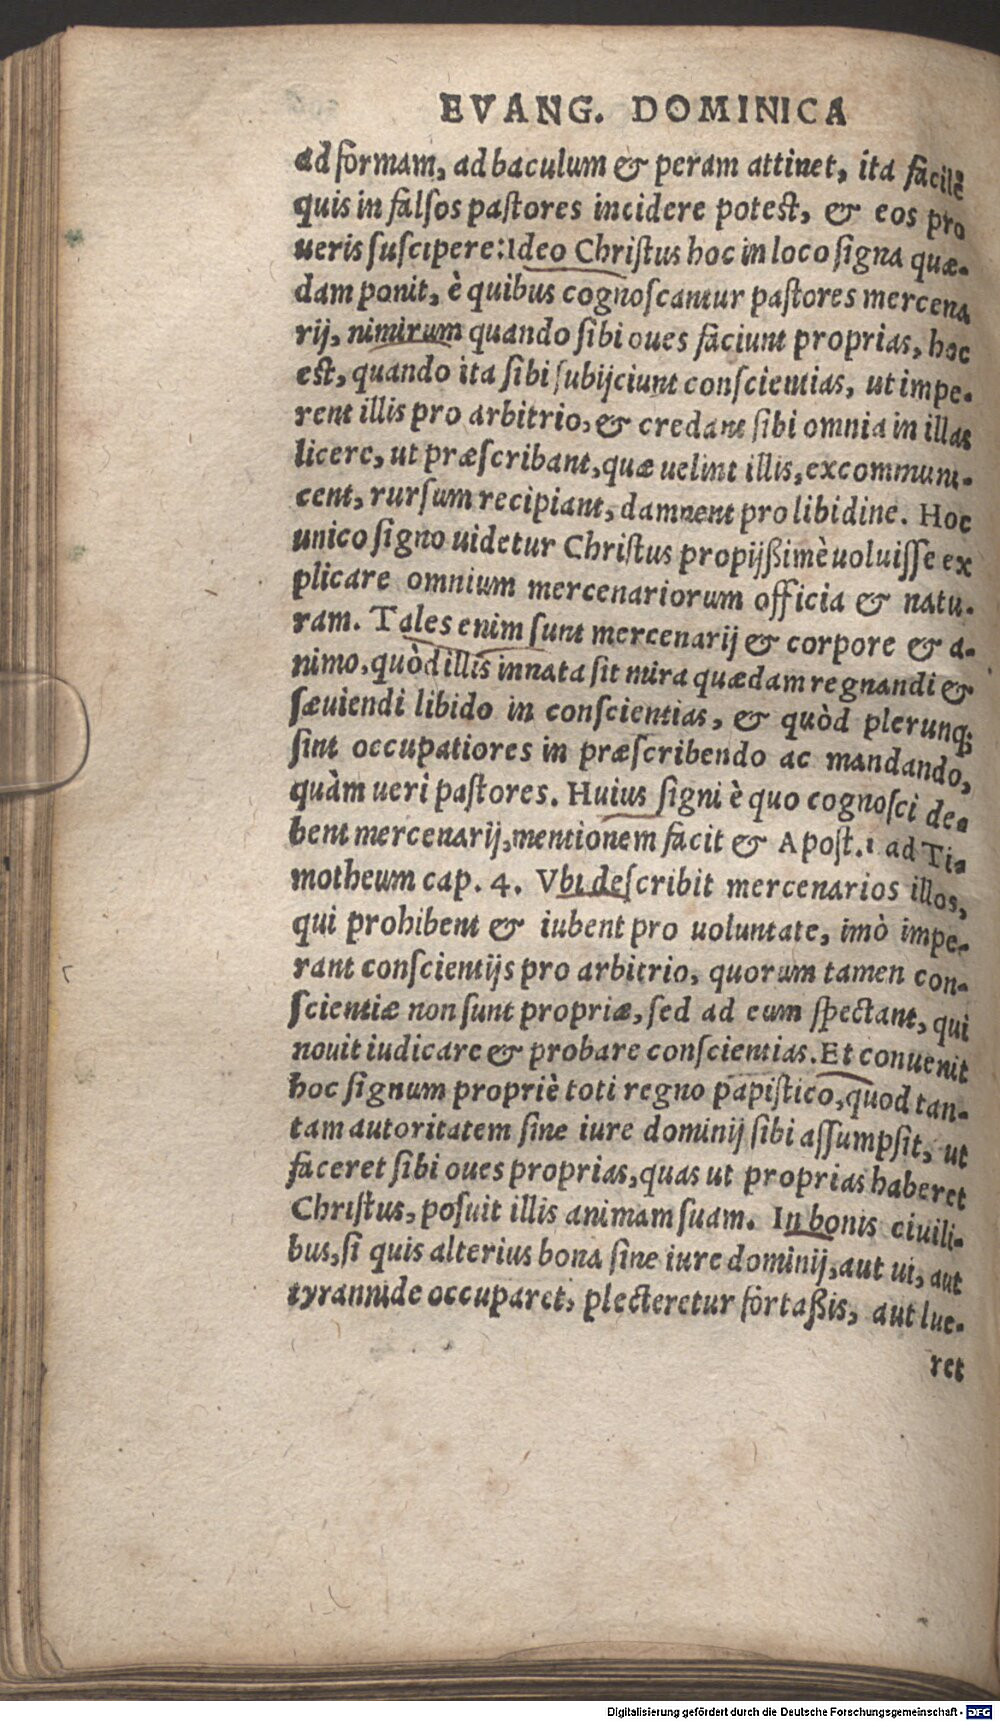 EVANG. DOMINICA
ad formam, ad baculum & peram attinet, ita facilè
quis in falſos paſtores incidere poteſt, & eos pro
ueris ſuſcipere: Ideo Chriſtus hoc in loco ſigna quæ-
dam ponit, è quibus cognoſcantur paſtores mercena
rij, nimirum quando ſibi oues faciunt proprias, hoc
eſt, quando ita ſibi ſubijciunt conſcientias, ut impe-
rent illis pro arbitrio, & credant ſibi omnia in illas
licere, ut præſcribant, quæ uelint illis, excommuni-
cent, rurſum recipiant, damnent pro libidine. Hoc
unico ſigno uidetur Chriſtus propijßimè uoluiſſe ex
plicare omnium mercenariorum officia & natu-
ram. Tales enim ſunt mercenarij & corpore & a-
nimo, quòd illis innata ſit mira quædam regnandi &
ſæuiendi libido in conſcientias, & quòd plerunq;
ſint occupatiores in præſcribendo ac mandando,
quàm ueri paſtores. Huius ſigni è quo cognoſci de-
bent mercenarij, mentionem facit & Apoſt. 1 ad Ti-
motheum cap. 4. Vbi deſcribit mercenarios illos,
qui prohibent & iubent pro uoluntate, imò impe-
rant conſcientijs pro arbitrio, quorum tamen con-
ſcientiæ non ſunt propriæ, ſed ad eum ſpectant, qui
nouit iudicare & probare conſcientias. Et conuenit
hoc ſignum propriè toti regno papiſtico, quod tan-
tam autoritatem ſine iure dominij ſibi aſſumpſit, ut
faceret ſibi oues proprias, quas ut proprias haberet
Chriſtus, poſuit illis animam ſuam. In bonis ciuili-
bus, ſi quis alterius bona ſine iure dominij, aut ui, aut
tyrannide occuparet, plecteretur fortaßis, aut lue-
ret
Digitalisierung gefördert durch die Deutsche Forschungsgemeinschaft - DFG